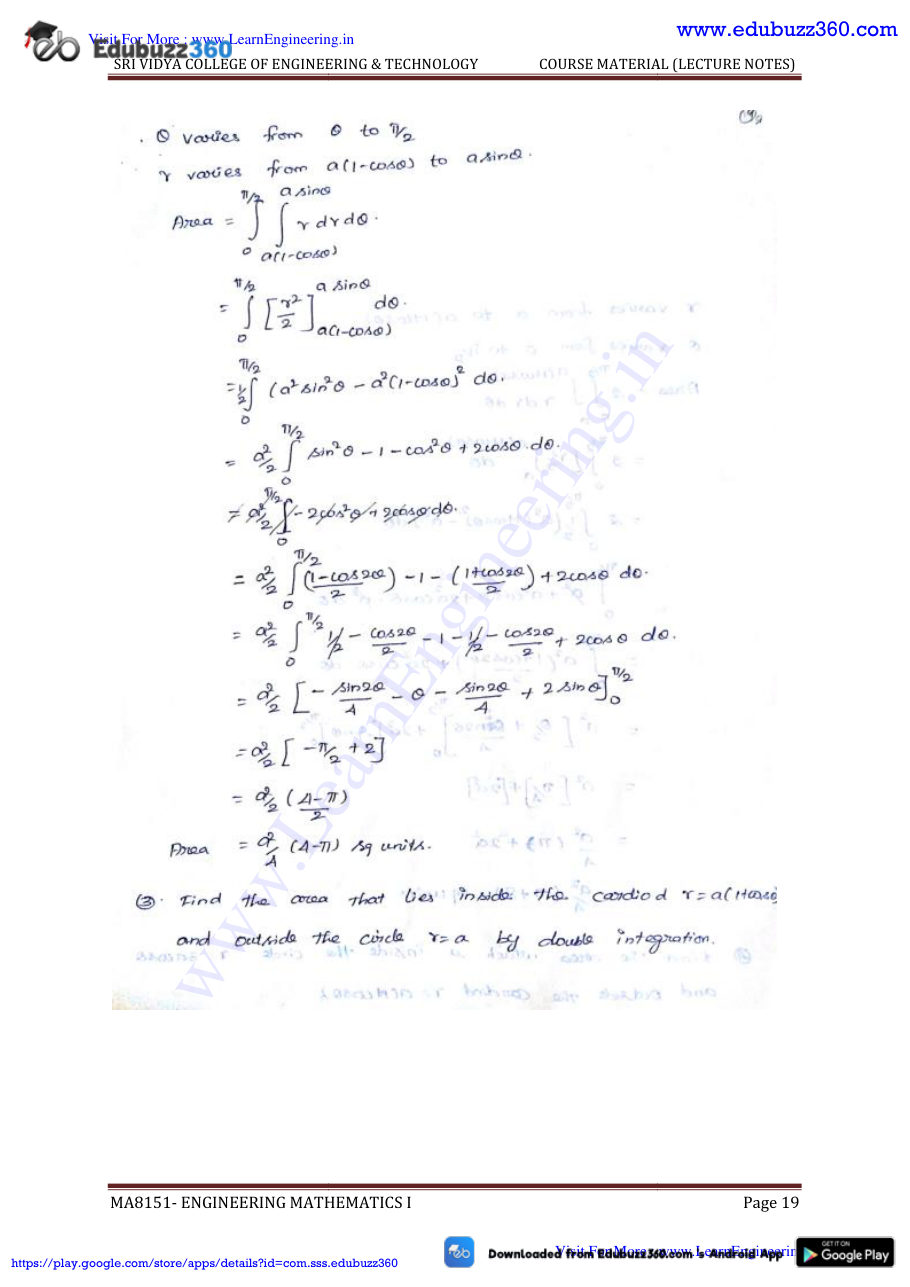 www.edubuzz360.com
Visit For More : www.LearnEngineering.in
Edubuzz360
SRI VIDYA COLLEGE OF ENGINEERING & TECHNOLOGY COURSE MATERIAL (LECTURE NOTES)
. θ varies from θ to π/2
r varies from a(1-cosθ) to a sinθ.
Area = ∫₀^{π/2} ∫_{a(1-cosθ)}^{a sinθ} r dr dθ.
= ∫₀^{π/2} [r²/2]_{a(1-cosθ)}^{a sinθ} dθ.
= 1/2 ∫₀^{π/2} (a² sin²θ - a²(1-cosθ)² dθ.
= a²/2 ∫₀^{π/2} sin²θ - 1 - cos²θ + 2cosθ dθ.
= a²/2 ∫₀^{π/2} - 2cos²θ + 2cosθ dθ.
= a²/2 ∫₀^{π/2} (1-cos2θ/2) - 1 - (1+cos2θ/2) + 2cosθ dθ.
= a²/2 ∫₀^{π/2} 1/2 - cos2θ/2 - 1 - 1/2 - cos2θ/2 + 2cosθ dθ.
= a²/2 [- sin2θ/4 - θ - sin2θ/4 + 2 sinθ]₀^{π/2}
= a²/2 [-π/2 + 2]
= a²/2 (4-π/2)
Area = a²/4 (4-π) sq units.
(3). Find the area that lies inside the cardiod r=a(1+cosθ
and outside the circle r=a by double integration.
www.LearnEngineering.in
MA8151- ENGINEERING MATHEMATICS I Page 19
https://play.google.com/store/apps/details?id=com.sss.edubuzz360
Downloaded from Edubuzz360.com 's Android App
GET IT ON
Google Play